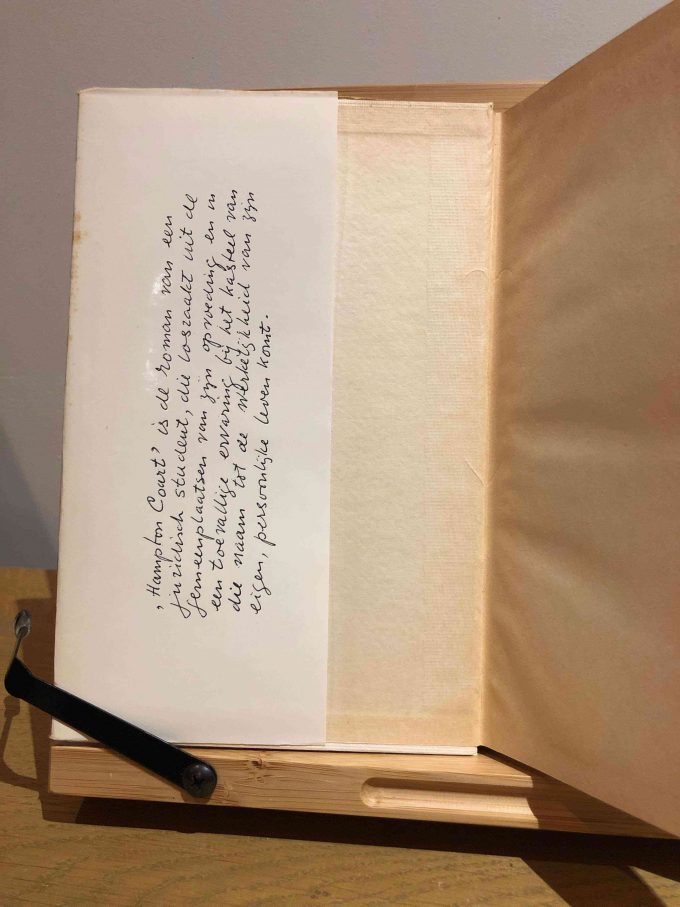 ‚Hampton Court' is de roman van een
juridisch student, die loszaakt uit de
gemeenplaatsen van zijn opvoeding en in
een toevallige ervaring bij het kasteel van
die naam tot de werkelijkheid van zijn
eigen, persoonlijke leven komt.